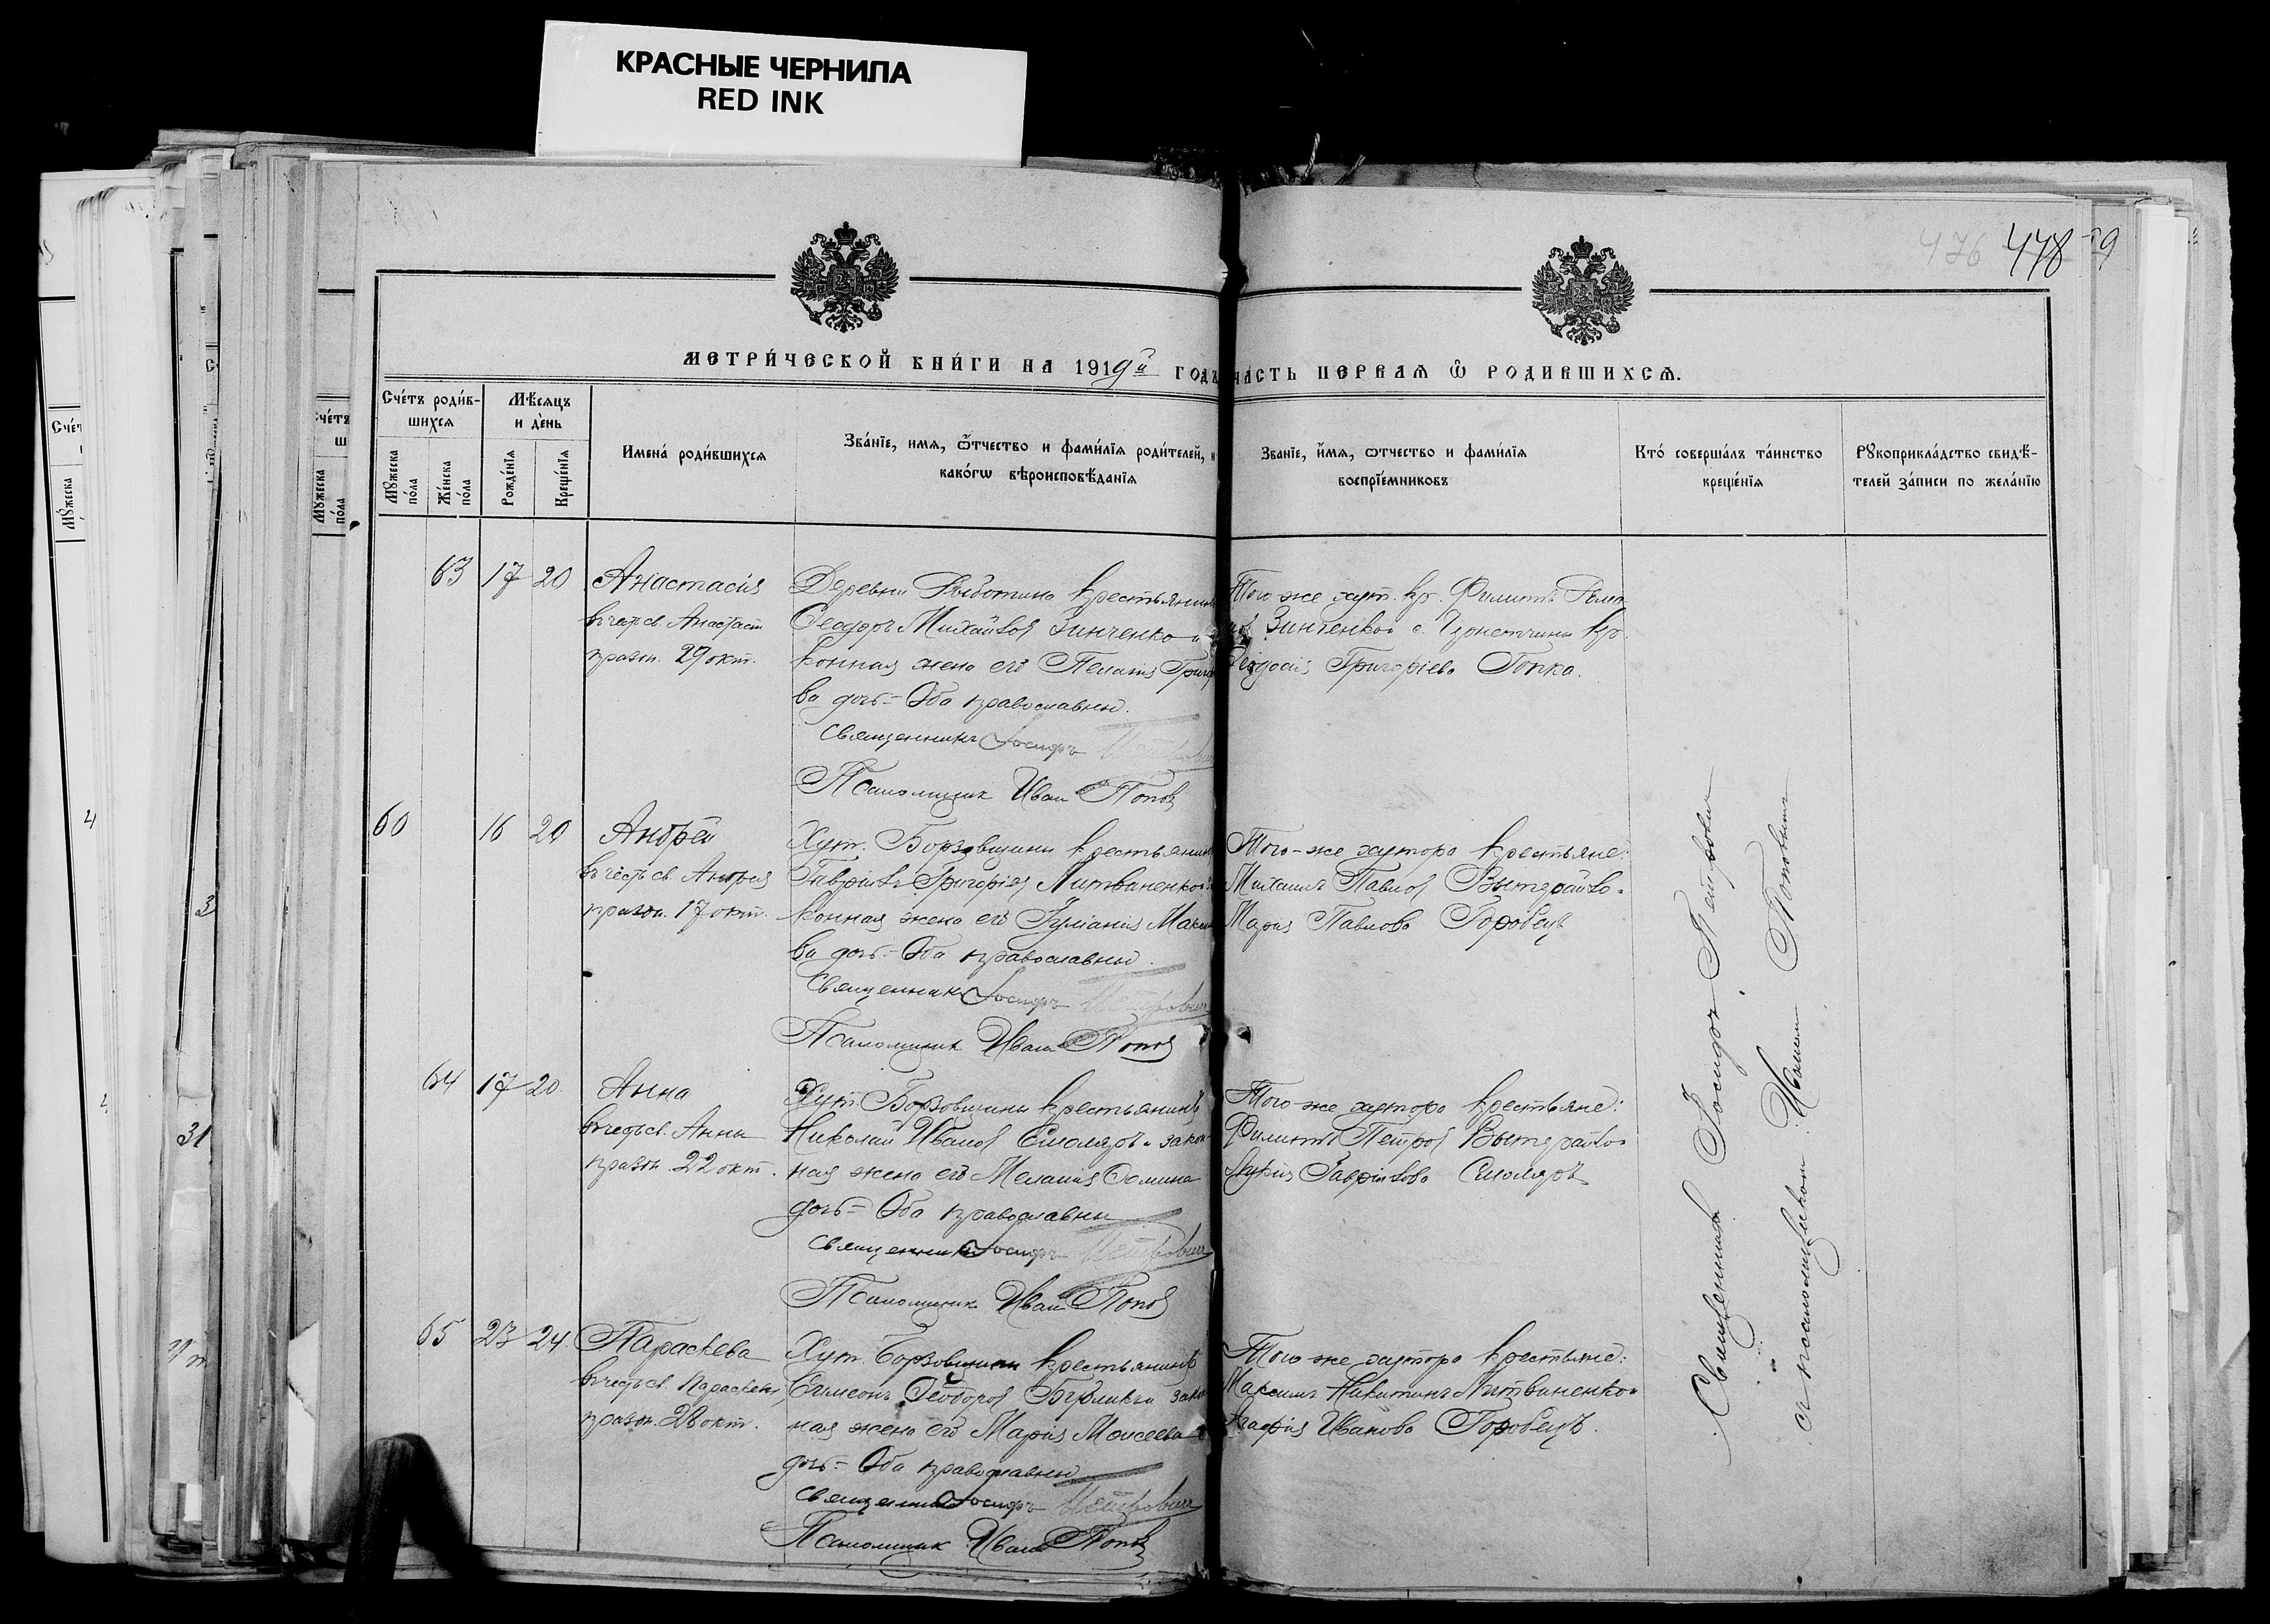 КРАСНЫЕ ЧЕРНИЛА
RED INK
476 478
МЕТРИ́ЧЕСКОЙ КНИ́ГИ НА 1919й ГОДЪ ЧАСТЬ ПЕРВАЯ Ѡ РОДИВШИХСЯ.
Сче́тъ роди́в-
шихся
Мѣсяцъ
и де́нь
Мꙋжеска
по́ла
Же́нска
по́ла
Рожде́нїя
Креще́нїя
Имена́ роди́вшихся
Зва́нїе, имя, ѻ҆́тчество и фами́лїя роди́телей, и
како́гѡ вѣроисповѣ́данїя
Званїе, и́мя, ѻтчество и фами́лїя
воспрїе́мниковъ
Кто́ соверша́лъ та́инство
креще́нїя
Рꙋкоприкла́дство свидѣ́-
телей за́писи по жела́нїю
63 17 20 Анастасія
въ честь св. Анастас
празн. 29 окт.
Деревни крестьянинъ
Ѳеодоръ Михайлов Зинченко и за
конная жена его Пелагія Григор
ва дочь = Оба православны.
Священникъ Іосифъ Петрович
Псаломщик Иван Попов
Того-же хут. кр. Филиппъ
Зинченко и с. кр.
Григоріева Гопка.
60 16 20 Андрей
въ честь св. Андрея
празн. 17 окт.
Хут. Борзовщины крестьянинъ
Гавріилъ Григоріев Литвиненко и за
конная жена его Іуліанія Макси
ва дочь = Оба православны.
Священникъ Іосифъ Петрович
Псаломщик Иван Попов
Того-же хутора крестьяне:
Михаилъ Павлов и
Марія Павлова Горобець
64 17 20 Анна
въ честь св. Анны
празн. 22 окт.
Хут. Борзовщины крестьянинъ
Николай Иванов Смоляръ и закон
ная жена его Меланія Ѳомина
дочь = Оба православны
Священникъ Іосифъ Петрович
Псаломщик Иван Попов
Того-же хутора крестьяне:
Филиппъ Петров и
Гавріилова Смоляръ
65 23 24 Параскева
въ честь св. Параскевы
празн. 28 окт.
Хут. Борзовщины крестьянинъ
Симеонъ Ѳеодоров и закон
ная жена его Марія Моисеева
дочь = Оба православны
Священникъ Іосифъ Петрович
Псаломщик Иван Попов
Того же хутора крестьяне:
Максимъ Никитинъ Литвиненко и
Агафія Иванова Горобець.
Священникъ Іосифъ Петрович
съ псаломщиком Иваном Поповымъ